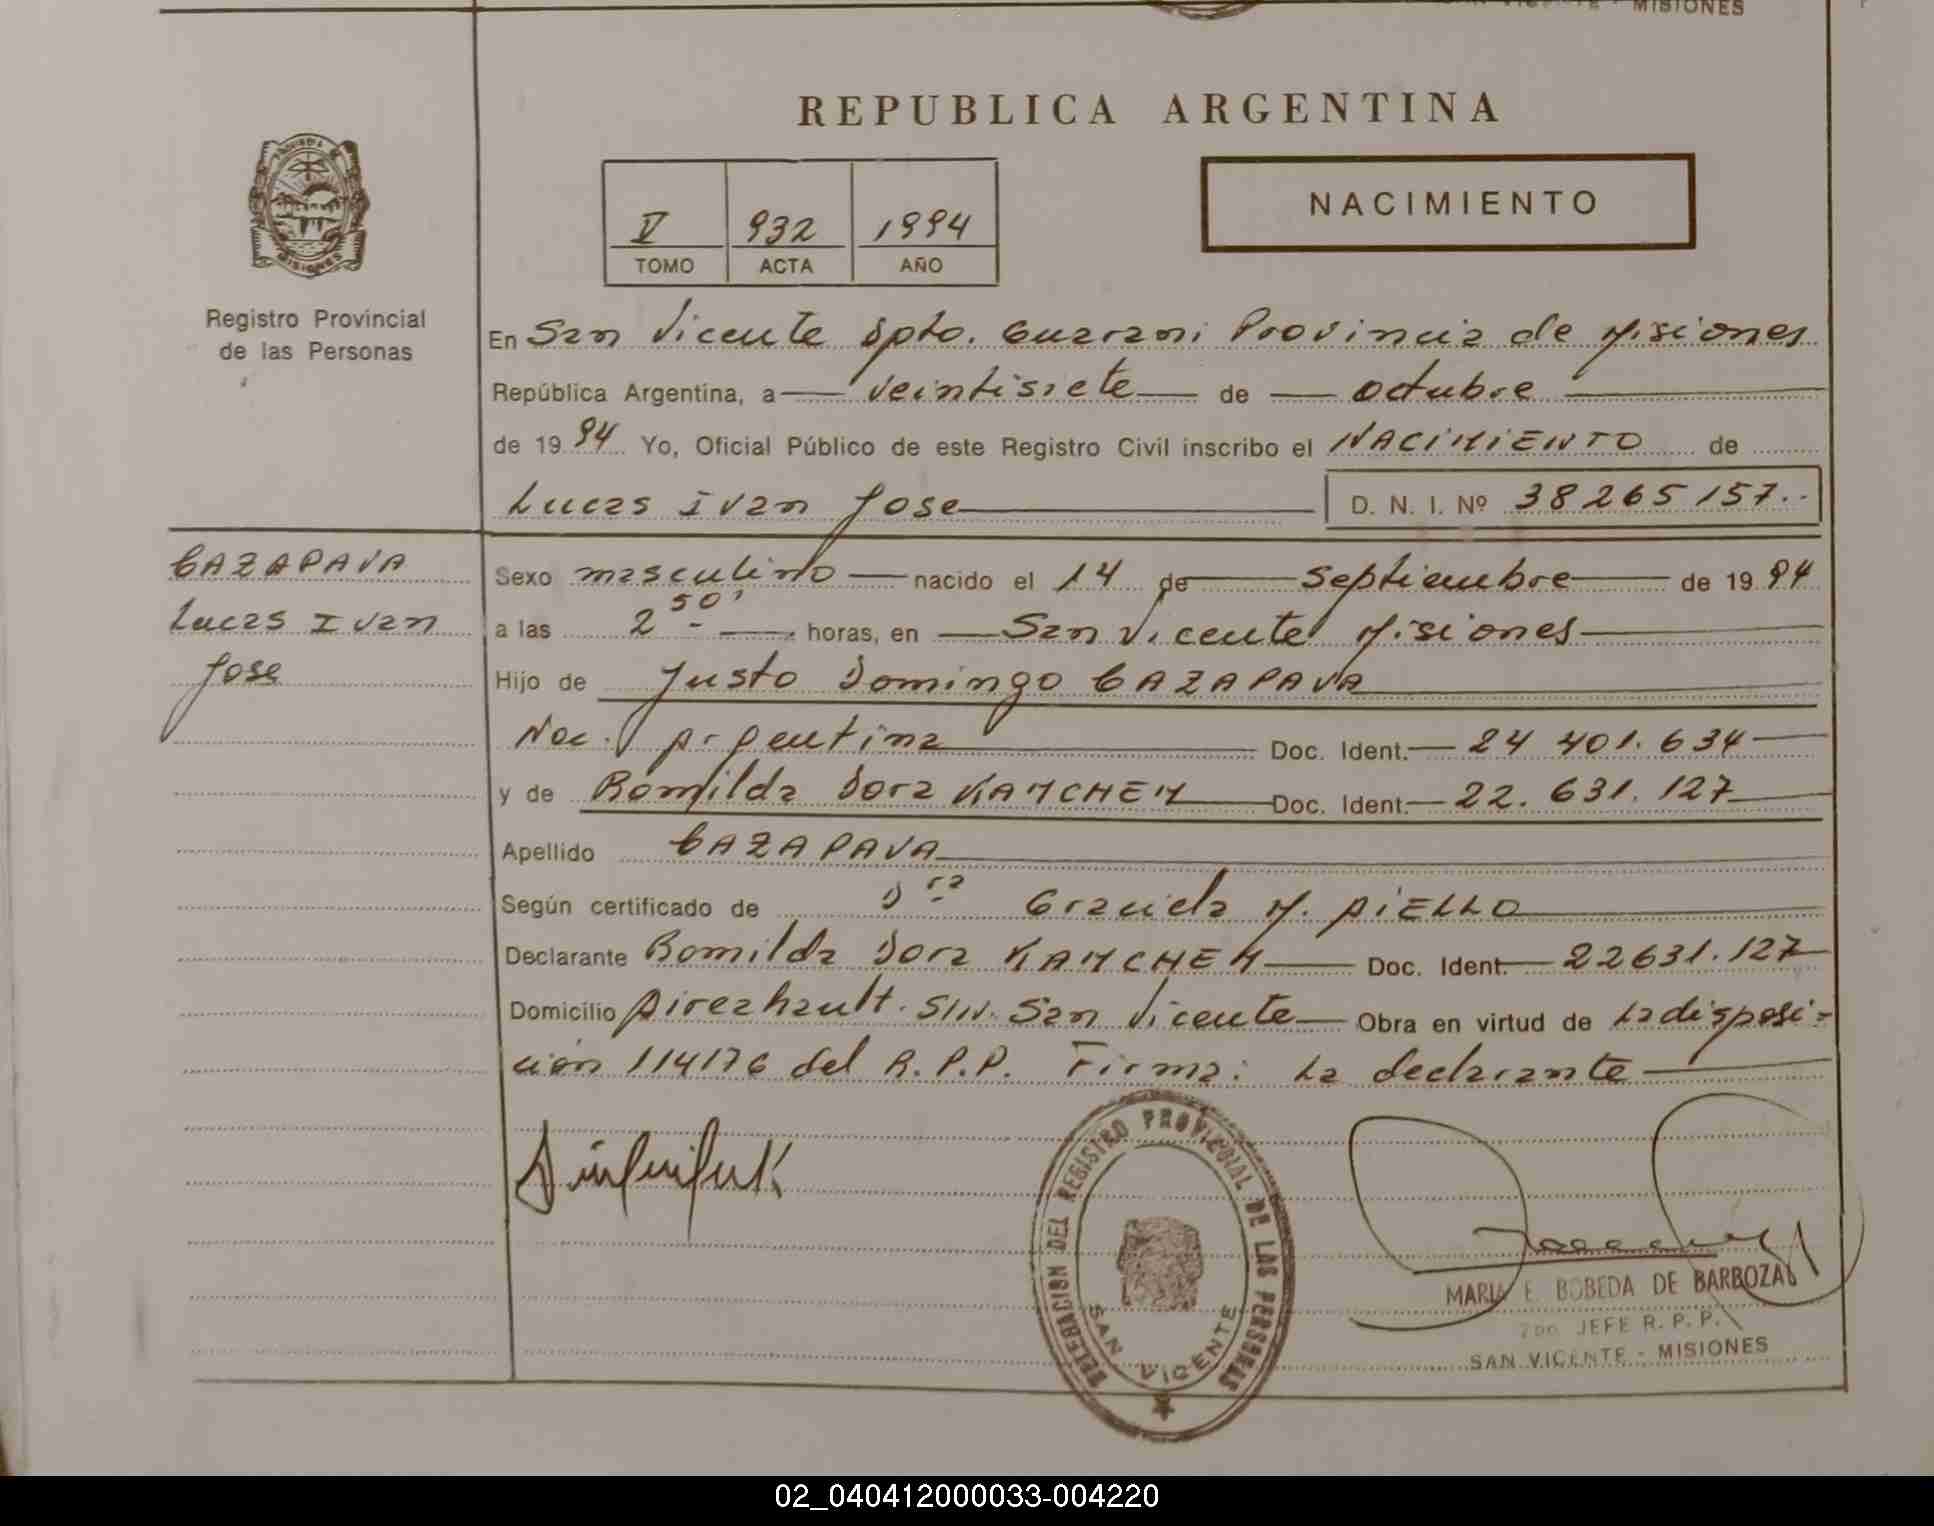 MISIONES
REPUBLICA ARGENTINA
NACIMIENTO
V 932 1994
TOMO ACTA AÑO
Registro Provincial
de las Personas
En San Vicente Dpto. Guarani Provincia de Misiones
República Argentina, a veintisiete de octubre
de 1994 Yo, Oficial Público de este Registro Civil inscribo el NACIMIENTO de
Lucas Ivan Jose D. N. I. Nº 38265157
CAZAPAVA
Lucas Ivan
Jose
Sexo masculino nacido el 14 de septiembre de 1994
a las 2 50' horas, en San Vicente Misiones
Hijo de Justo Domingo CAZAPAVA
Nac. Argentina Doc. Ident. 24 401.634
y de Romilda Dora KAMCHEM Doc. Ident. 22.631.127
Apellido CAZAPAVA
Según certificado de Dra Graciela M. AIELLO
Declarante Romilda Dora KAMCHEM Doc. Ident. 22631.127
Domicilio S/N. San Vicente Obra en virtud de la disposi-
ción 114176 del R.P.P. Firma: La declarante
DELEGACION DEL REGISTRO PROVINCIAL DE LAS PERSONAS
SAN VICENTE
MARIA E. BOBEDA DE BARBOZA
2do JEFE R. P. P.
SAN VICENTE - MISIONES
02_040412000033-004220